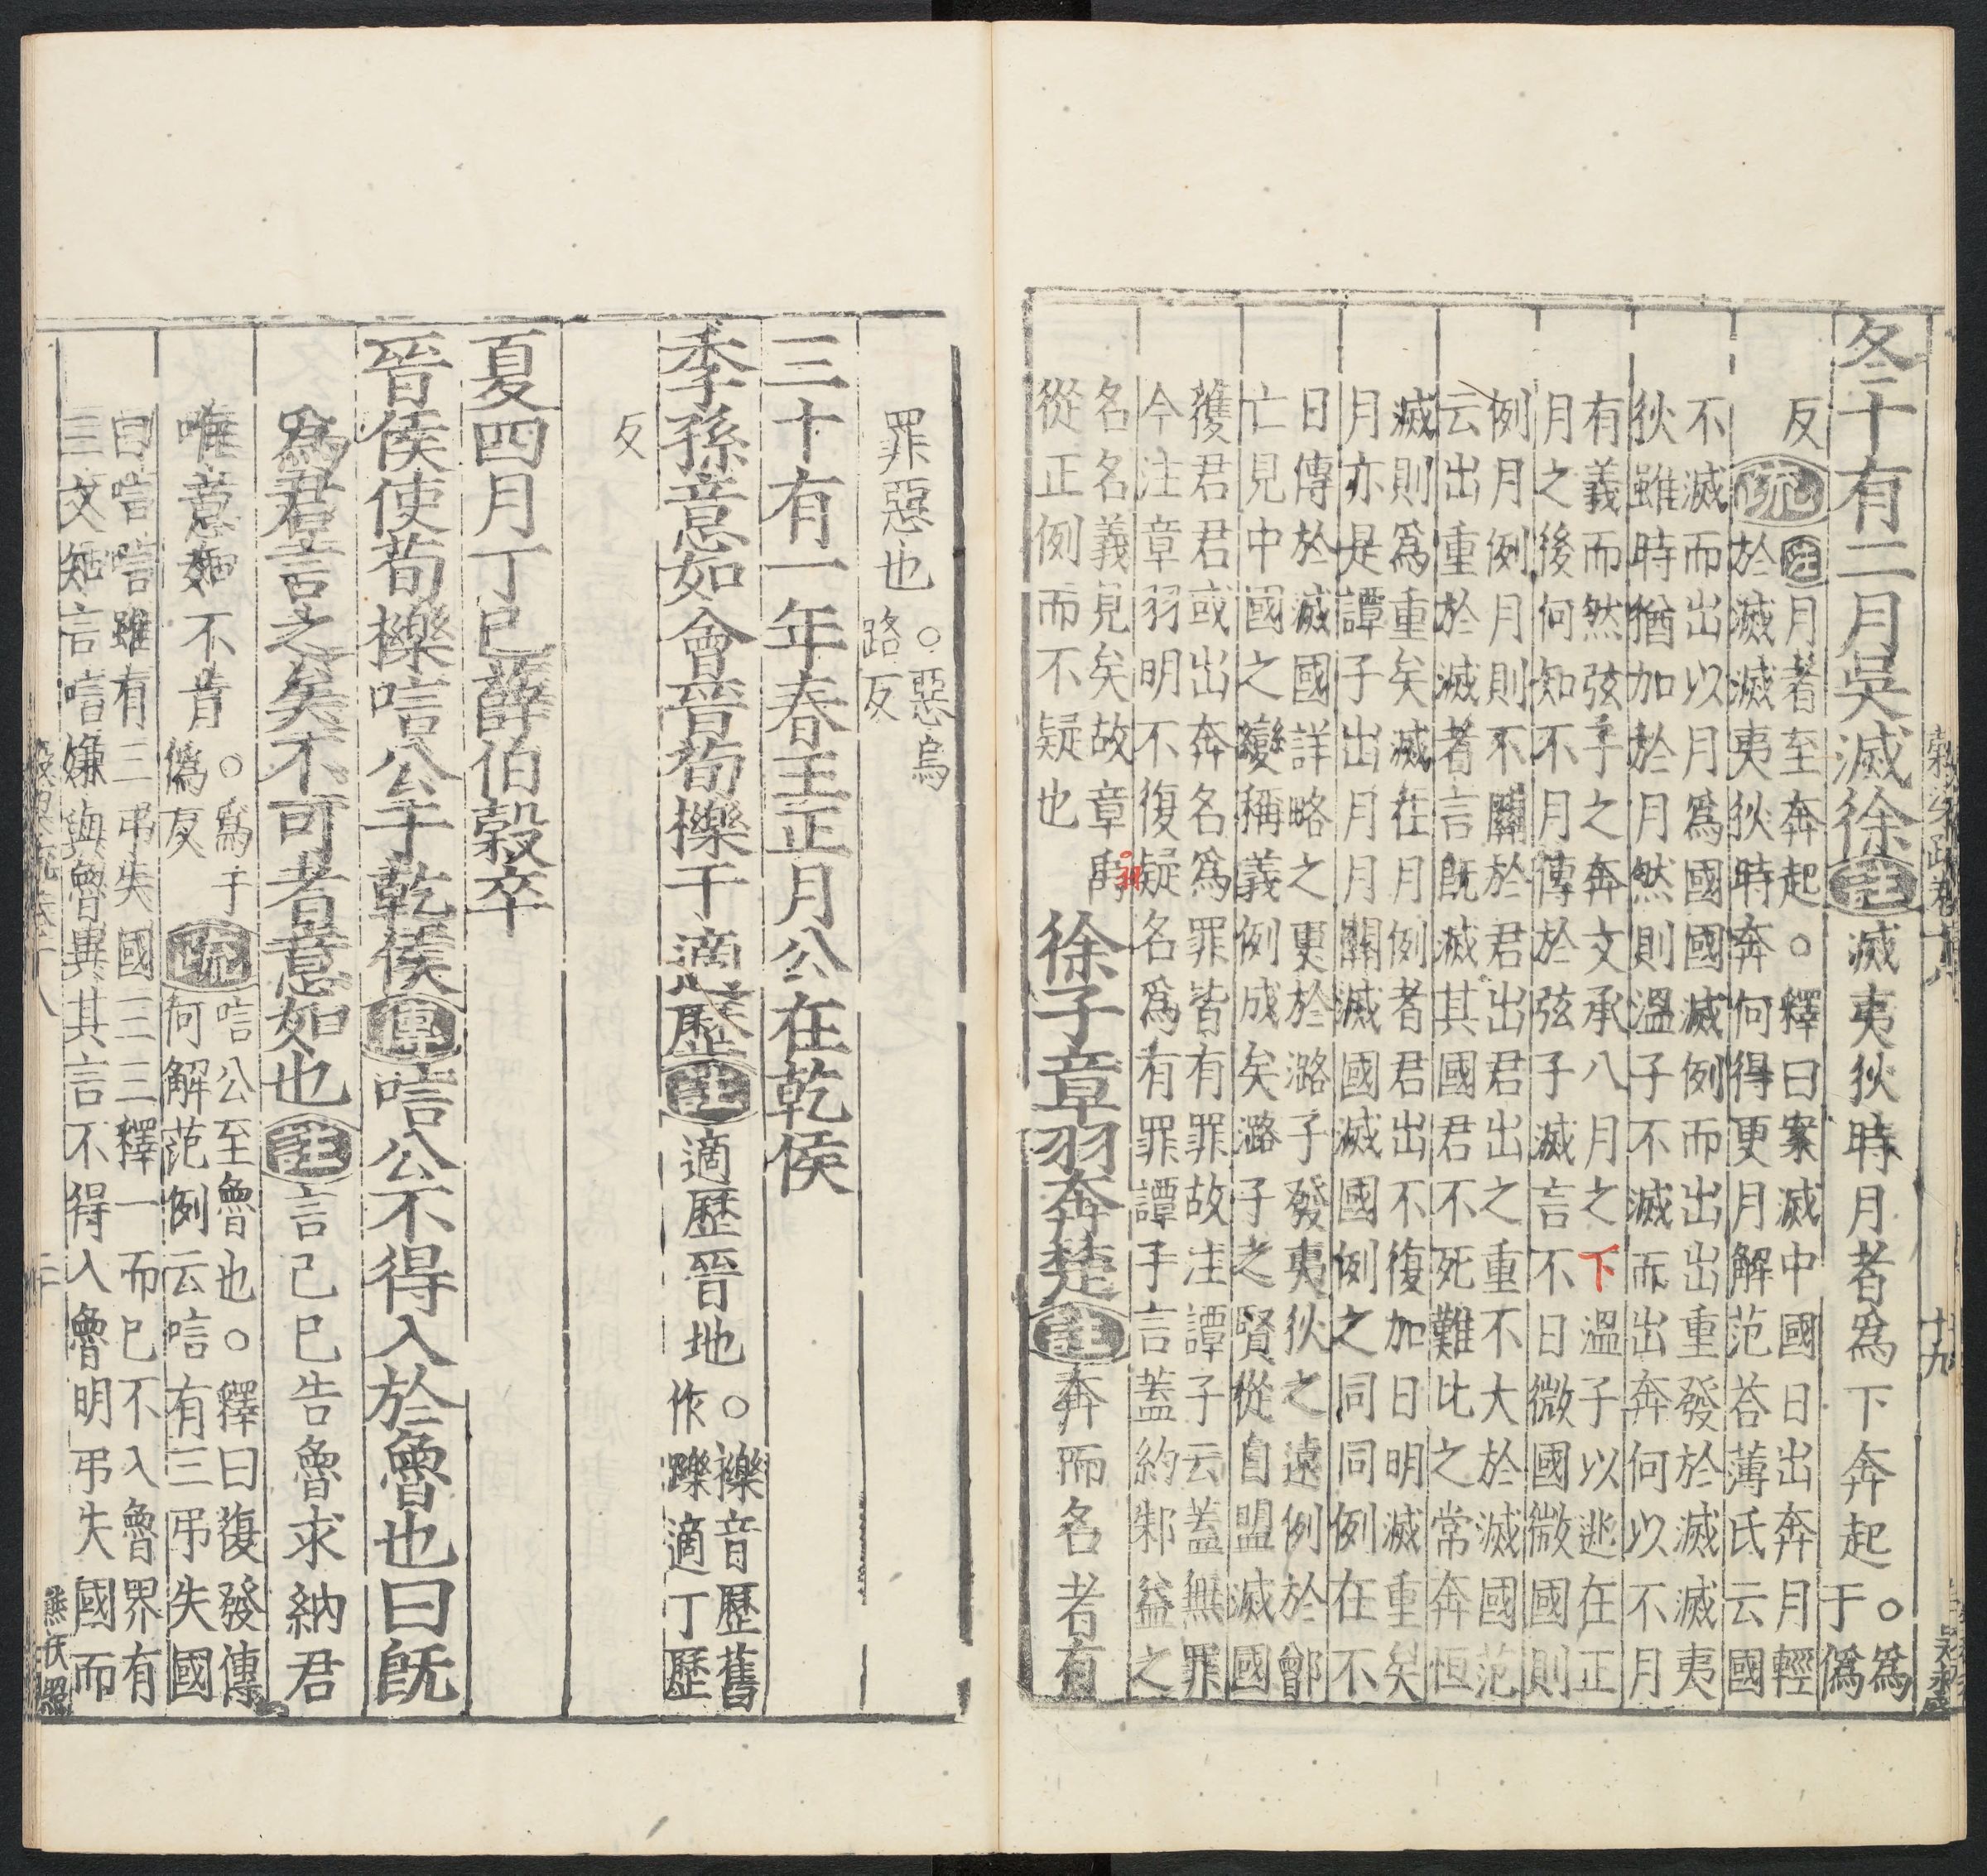 冬十有二月吳滅徐註滅夷狄時月者爲下奔起○爲于僞
反疏注月者至奔起○釋曰案滅中國日出奔月輕
於滅滅夷狄時奔何得更月解范荅薄氏云國
不滅而出以月爲國國滅例而出出重發於滅滅夷
狄雖時猶加於月然則溫子不滅而出奔何以不月
有義而然弦子之奔文承八月之下溫子以逃在正
月之後何知不月傳於弦子滅言不日微國微國則
例月例月則不關於君出君出之重不大於滅國范
云出重於滅者言旣滅其國君不死難比之常奔恒
滅則爲重矣滅在月例者君出不復加日明滅重矣
月亦是譚子出月月關滅國滅國例之同同例在不
日傳於滅國詳略之更於潞子發夷狄之遠例於鄫
亡見中國之變稱義例成矣潞子之賢從自盟滅國
獲君君或出奔名爲罪皆有罪故注譚子云蓋無罪
今注章羽明不復疑名爲有罪譚子言蓋約邾益之
名名義見矣故章羽
從正例而不疑也
徐子章羽奔楚註奔而名者有
罪惡也○惡烏路反
三十有一年春王正月公在乾侯
季孫意如會晉荀櫟于適歷註適歷晉地○櫟音歷舊作躒適丁歷
反
夏四月丁巳薛伯穀卒
晉侯使荀櫟唁公于乾侯傳唁公不得入於魯也曰旣
爲君言之矣不可者意如也註言己已告魯求納君
唯意如不肯○爲于僞反疏唁公至魯也○釋曰復發傳
何解范例云唁有三弔失國
曰唁唁雖有三弔失國三三釋一而已不入魯界有
三文知言唁嫌與魯異其言不得入魯明弔失國而